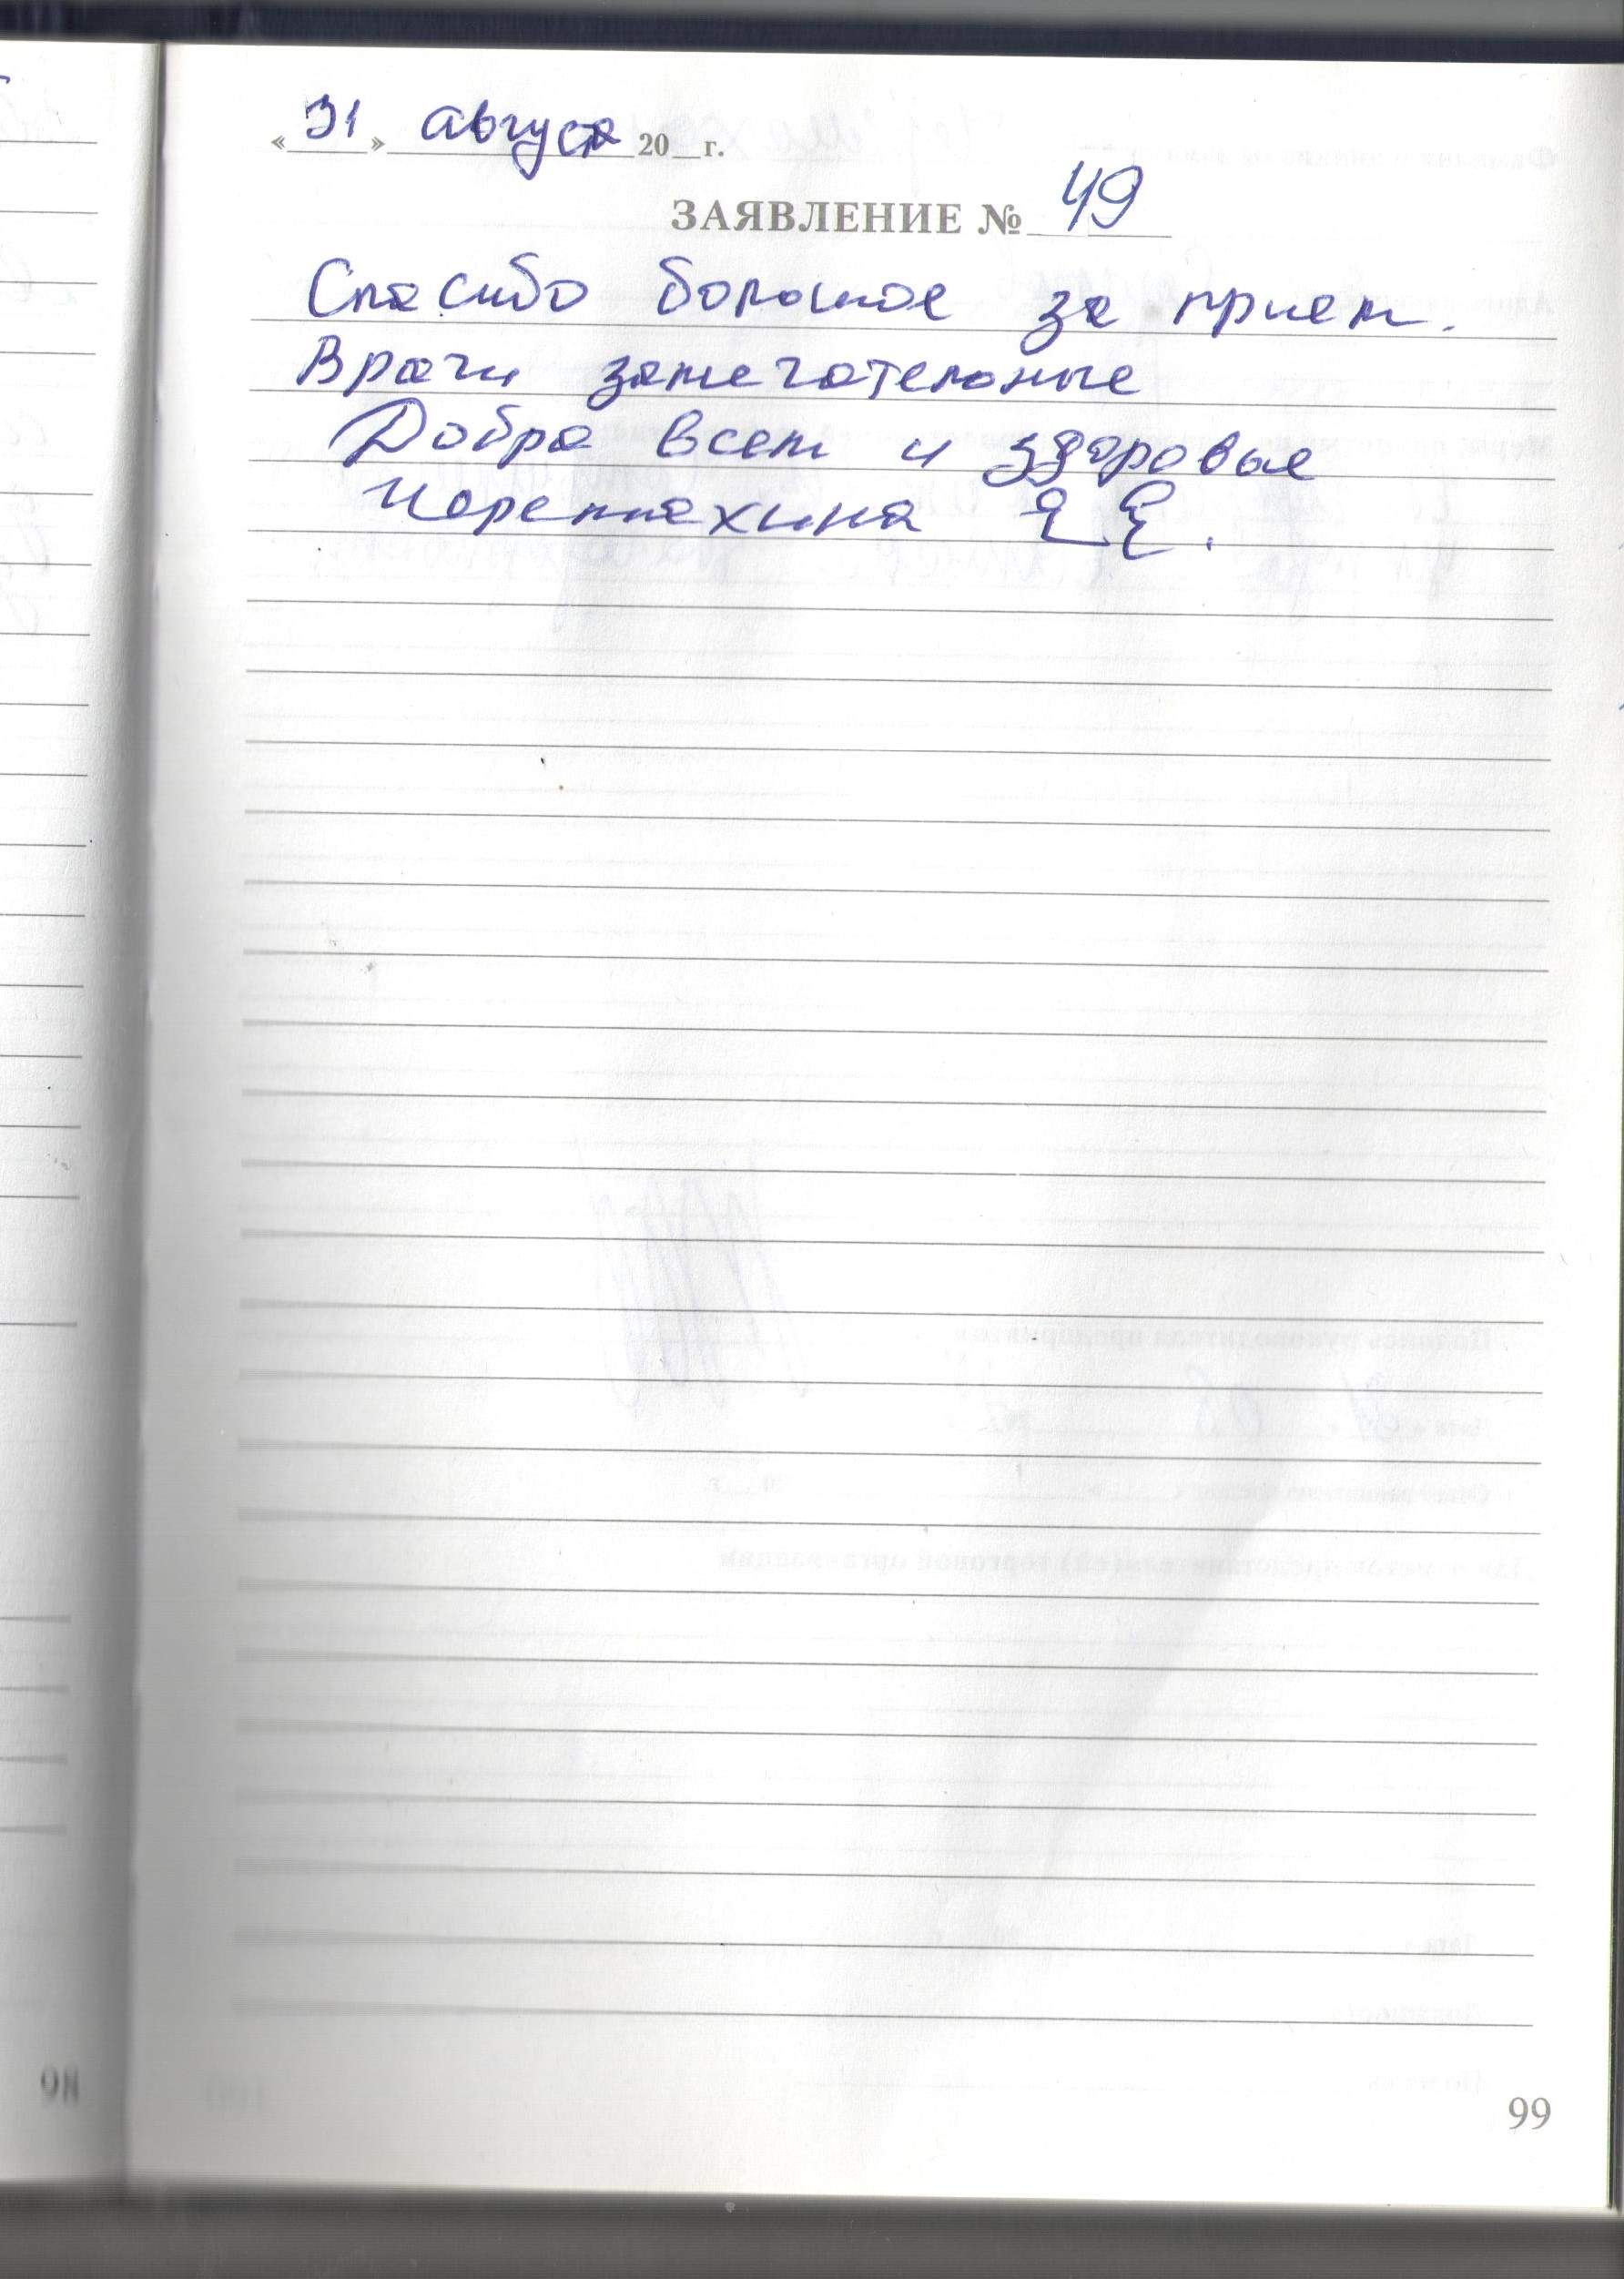 « 31 » августа 20__г.
ЗАЯВЛЕНИЕ № 49
Спасибо большое за прием.
Врачи замечательные
Добра всем и здоровья
98
99